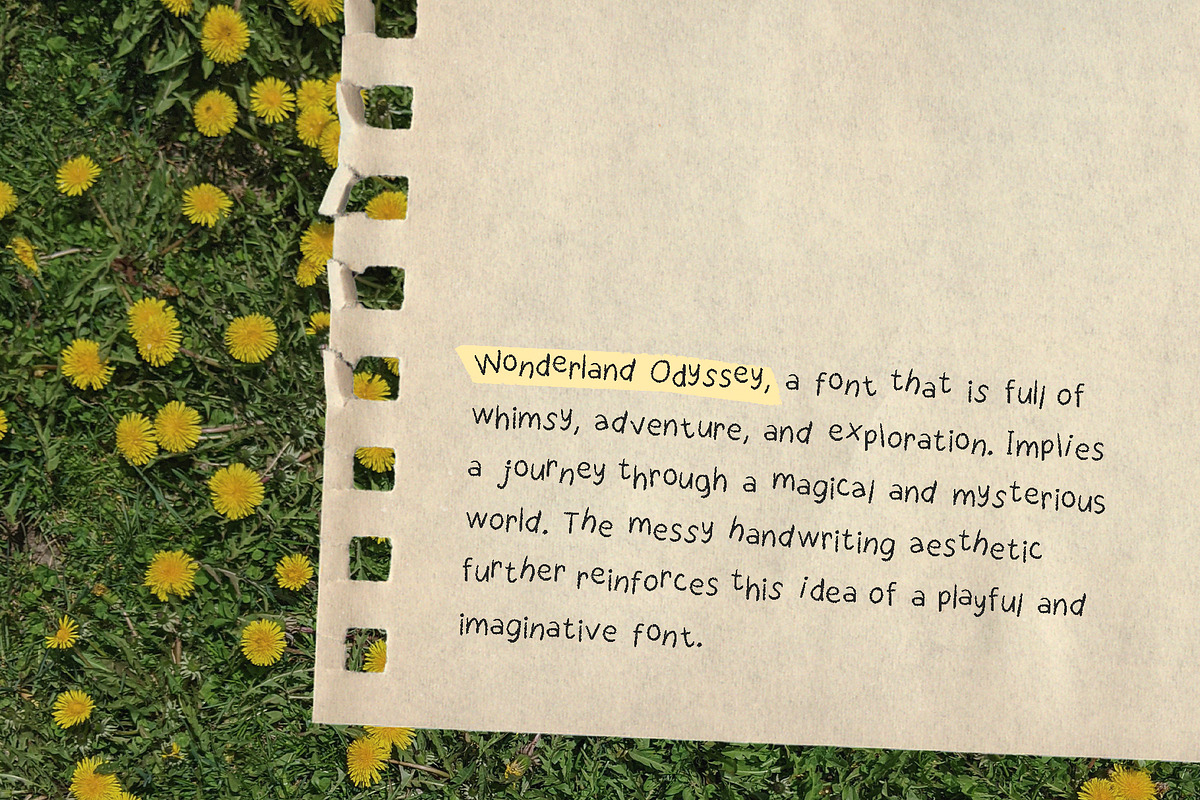 Wonderland Odyssey, a font that is full of
whimsy, adventure, and exploration. Implies
a journey through a magical and mysterious
world. The messy handwriting aesthetic
further reinforces this idea of a playful and
imaginative font.